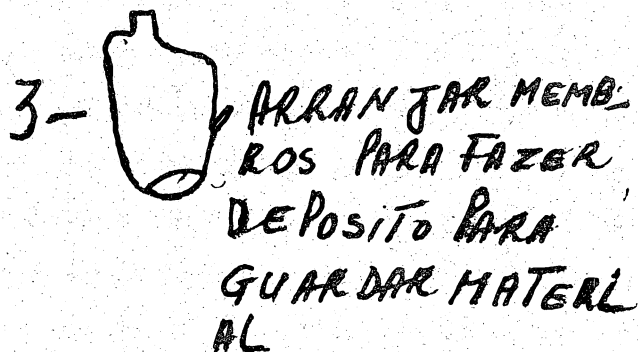 3- ARRANJAR MEMB-
ROS PARA FAZER
DEPOSITO PARA
GUARDAR MATERI
AL